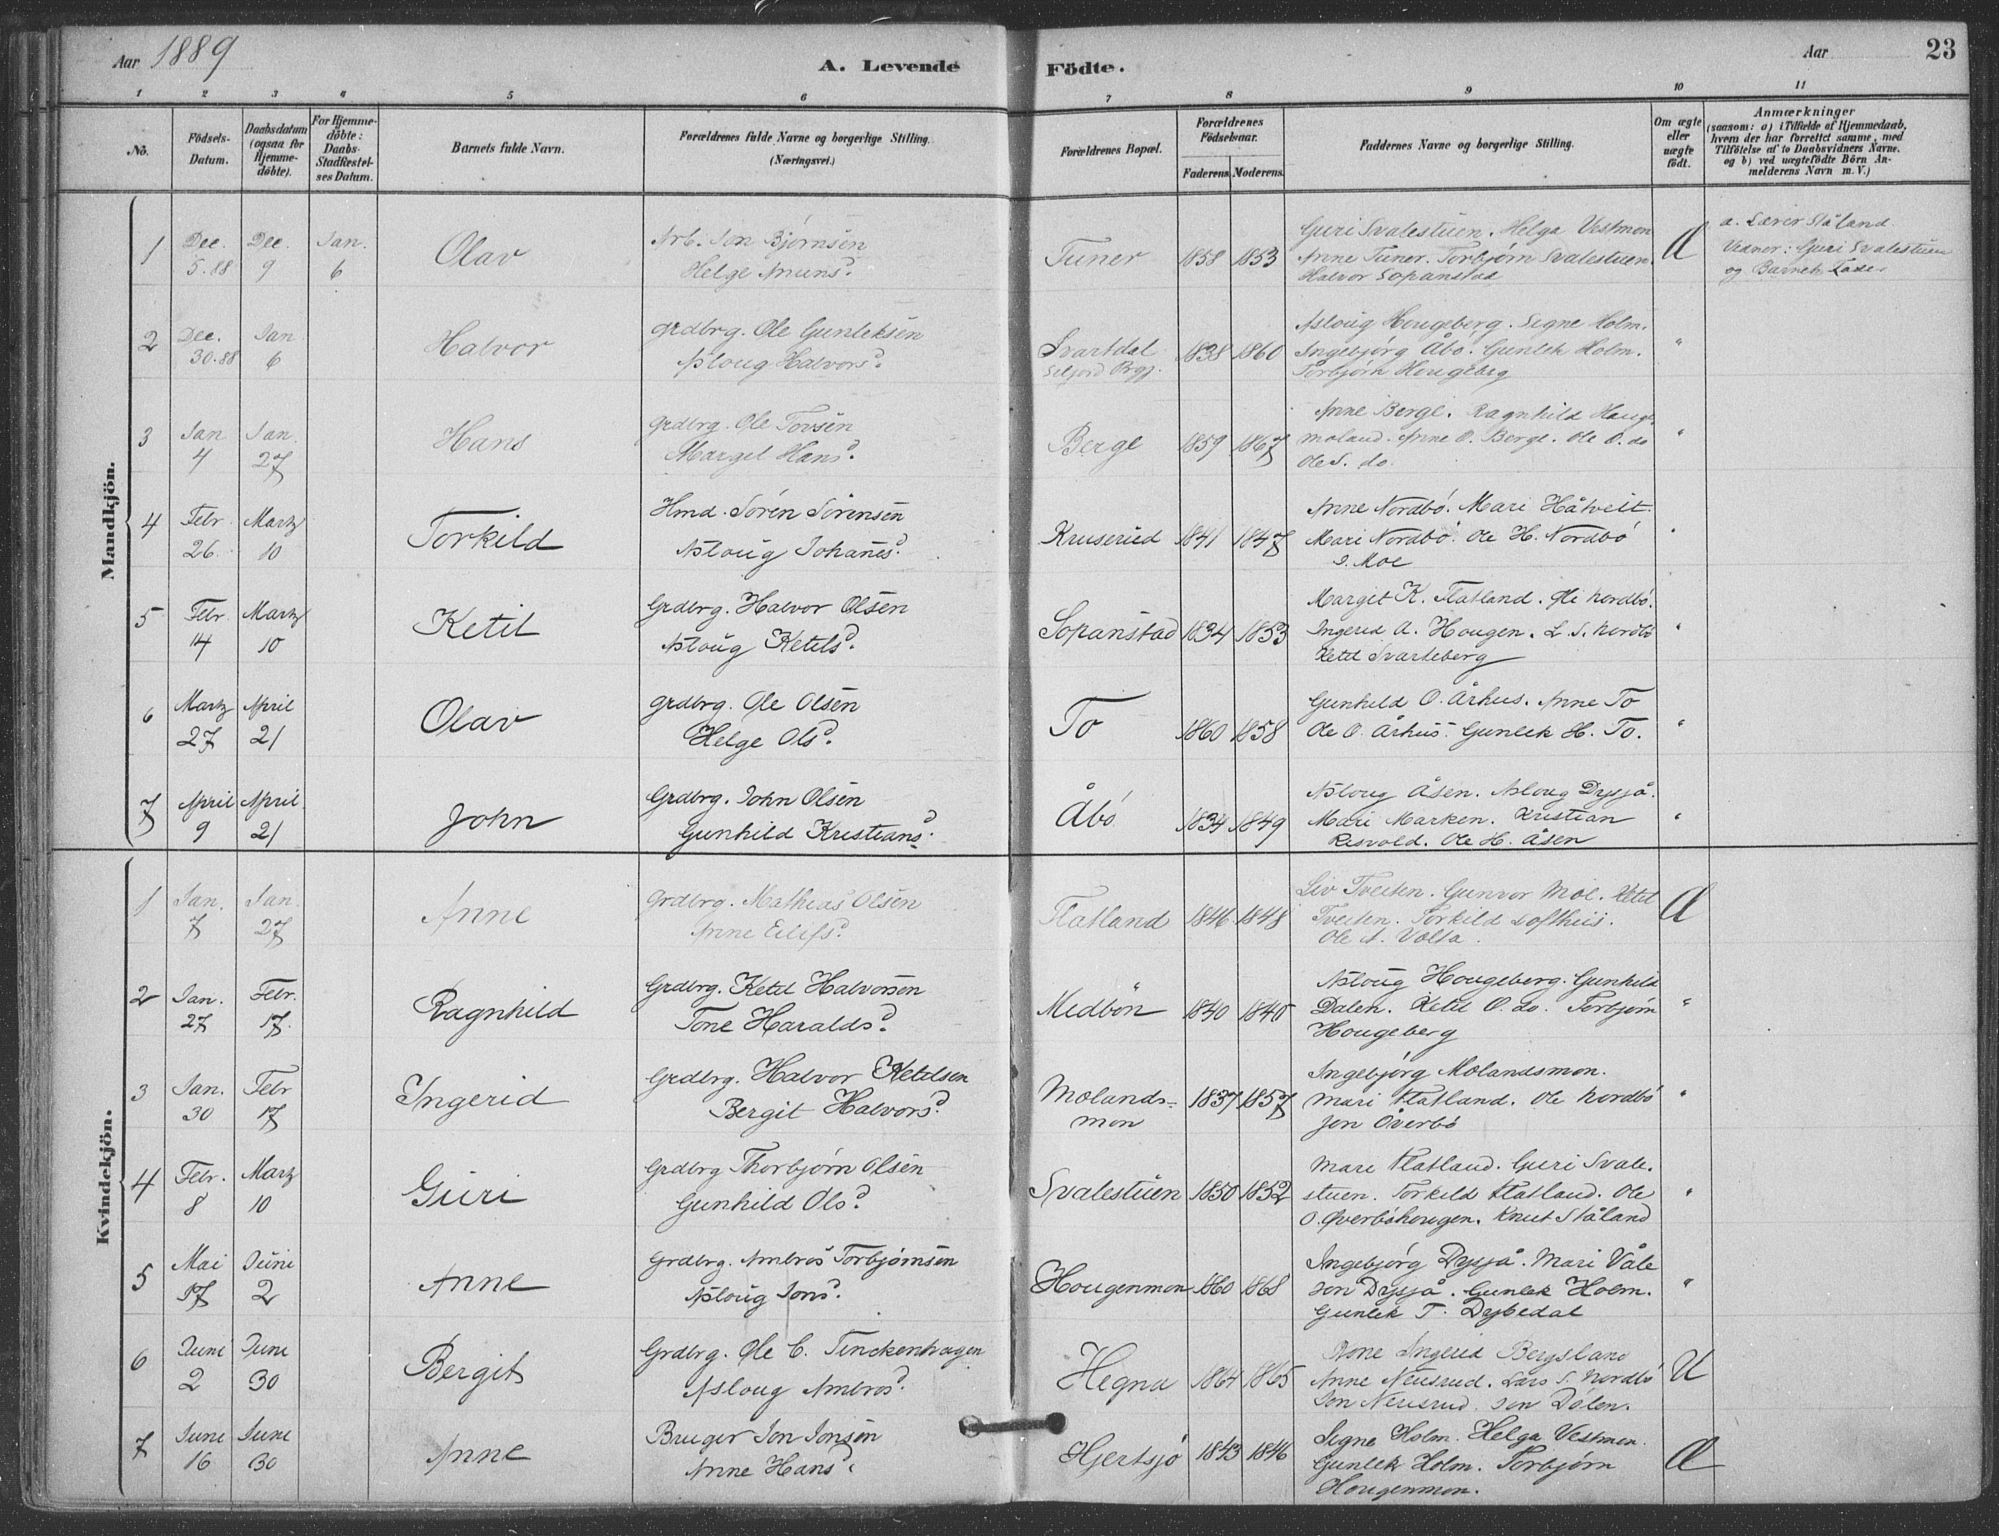 Aar 1889
A. Levende Födte.
Aar
23
1 2 3 4 5 6 7 8 9 10 11
No.
Födsels-
Datum.
Daabsdatum
(ogsaa for
Hjemme-
döbte).
For Hjemme-
döbte:
Daabs-
Stadfæstel-
ses Datum.
Barnets fulde Navn.
Forældrenes fulde Navne og borgerlige Stilling.
(Næringsvei.)
Forældrenes Bopæl.
Forældrenes
Födselsaar.
Faderens. Moderens.
Faddernes Navne og borgerlige Stilling.
Om ægte
eller
uægte
födt.
Anmærkninger
(saasom: a) i Tilfælde af Hjemmedaab,
hvem der har forrettet samme, med
Tilföielse af to Daabsvidners Navne,
og b) ved uægtefödte Börn An-
melderens Navn m. V.)
Mandkjön.
1 Dec. 5.88 Dec. 9 Jan. 6 Olav
Arb. Jon Bjørnsen
Helge Amuns d.
Tuner 1858 1853
Guri Svalestuen. Helga Vestmon
Anne Tuner. Torbjørn Svalestuen.
Halvor Sopanstad
Æ
a. Lærer Ståland
Vidner: Guri Svalestuen
og Barnets Fader
2 Dec. 30.88 Jan 6 Halvor
Grdbrg. Ole Gunleksen
Asloug Halvors d.
Svartdal
Seljord Prgj.
1838 1860
Asloug Hougeberg. Signe Holm.
Ingebjörg Åbö. Gunlek Holm.
Torbjörn Hougeberg
"
3 Jan 4 Jan. 27 Hans
Grdbrg. Ole Tovsen
Margit Hans d.
Berge 1859 1867
Anne Berge. Ragnhild Hauge
moland. Anne O. Berge. Ole O. do
Ole S. do.
"
4 Febr. 26. Martz 10 Torkild
Hmd. Sören Sörensen
Asloug Johanes d.
Kruseried 1841 1847
Anne Nordbö. Mari Håtveit
Mari Nordbö. Ole H. Nordbö
S. Moe
"
5 Febr 14 Martz 10 Ketil
Grdbrg. Halvor Olsen
Asloug Ketils d.
Sopanstad 1834 1853
Margit K. Flatland. Ole Nordbö.
Ingerid A. Hougen. L. S. Nordbö
Ketil Svarteberg
"
6 Martz 27 April 21 Olav
Grdbrg. Ole Olsen
Helge Ols d.
To 1860 1858
Gunhild O. Århus. Anne To
Ole O. Århus. Gunlek H. To.
"
7 April 9 April 21 John
Grdbrg. John Olsen
Gunhild Kristians d.
Åbö 1834 1849
Asloug Åsen. Asloug Dysjå.
Mari Marken. Kristian
Risvold. Ole H. Åsen
"
Kvindekjön.
1 Jan. 7 Jan. 27 Anne
Grdbrg. Mathias Olsen
Anne Eilifs d.
Flatland 1846 1848
Liv Tveiten. Gunvor Moe. Ketil
Tveiten. Torkild Lofthus.
Ole A. Volta.
Æ
2 Jan. 27 Febr. 17. Ragnhild
Grdbrg. Ketil Halvorsen
Tone Haralds d.
Midbön 1840 1840
Asloug Hougeberg. Gunhild
Dalen. Ketil O. do. Torbjørn
Hougeberg
"
3 Jan. 30 Febr 17 Ingerid
Grdbrg. Halvor Ketilsen
Bergit Halvors d.
Molands-
mon
1837 1857
Ingebjörg Molandsmon.
Mari Flatland. Ole Nordbö
Jon Överbö
"
4 Febr. 8 Martz 10 Guri
Grdbrg Thorbjørn Olsen
Gunhild Ols d.
Svalestuen 1850 1852
Mari Flatland. Guri Svale-
stuen. Torkild Flatland. Ole
O. Øverböhougen. Knut Ståland
"
5 Mai 17 Juni 2 Anne
Grdbrg. Ambros Torbjørnsen
Asloug Jons d.
Hougenmon 1860 1868
Ingebjörg Dysjå. Mari Våle
Jon Dysjå. Gunlek Holm.
Gunlek T. Dybedal
"
6 Juni 2 Juni 30 Bergit
Grdbrg. Ole C. Tinckenhagen
Asloug Ambros d.
Hegna 1864 1865
Tone Ingerid Bergsland
Anne Neusrud. Lars S. Nordbö
Jon Neusrud. Jon Dölen.
U
7 Juni 16 Juni 30 Anne
Bruger Jon Jonsen
Anne Hans d.
Hjertsjö 1843 1846
Signe Holm. Helga Vestmon.
Gunlek Holm. Torbjörn
Hougenmon.
Æ